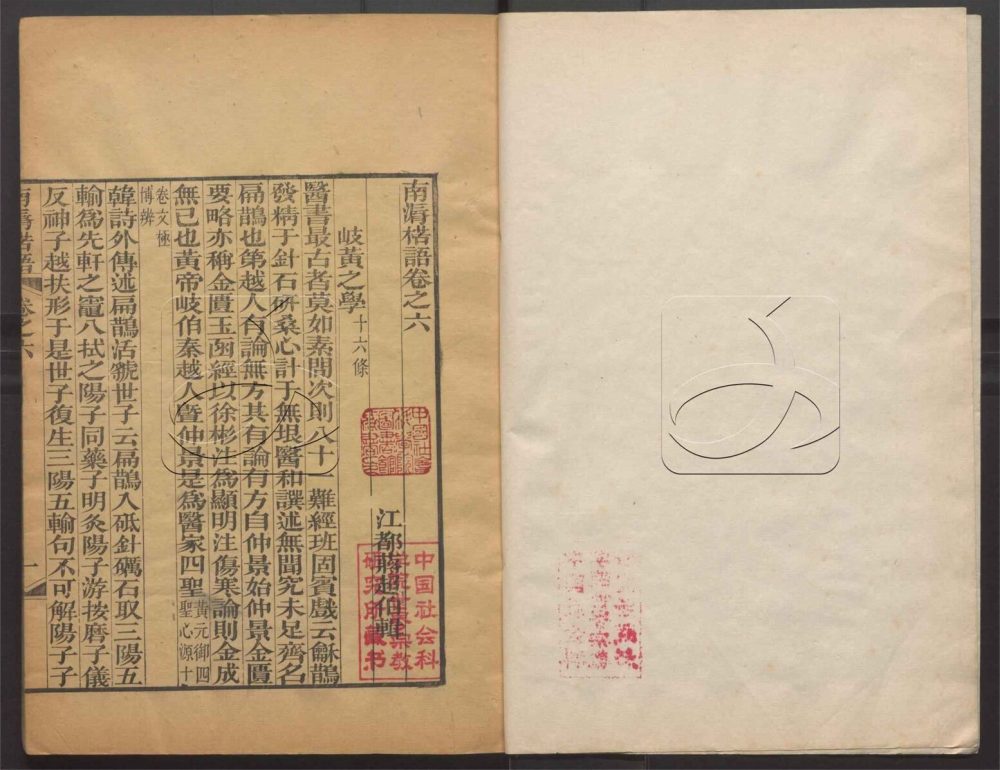 南漘楛語卷之六
江都蔣超伯輯
岐黃之學十六條
醫書最古者莫如素問次則八十一難經班固賓戲云龢鵲
發精于針石研桑心計于無垠醫和譔述無聞究未足齊名
扁鵲也第越人有論無方其有論有方自仲景始仲景金匱
要略亦稱金匱玉函經以徐彬注為顯明注傷寒論則金成
無己也黃帝岐伯秦越人暨仲景是為醫家四聖黃元御四
聖心源十
卷文極
博辨
韓詩外傳述扁鵲活虢世子云扁鵲入砥針礪石取三陽五
輸爲先軒之竈八拭之陽子同藥子明灸陽子游按磨子儀
反神子越扶形于是世子復生三陽五輸句不可解陽子子
南漘楛語 卷之六 一
中国社会科
学院世界宗教
研究所藏书